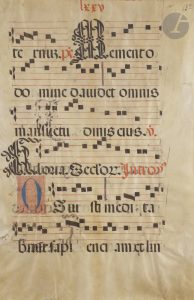 lxxv
te rnuz. ps. Memento
do mine dauid et omnis
mansuetu dinis eius. V.
Gloria. Seclor. Introy
Os iu sti medi ta
bitur sapi enci am et lin